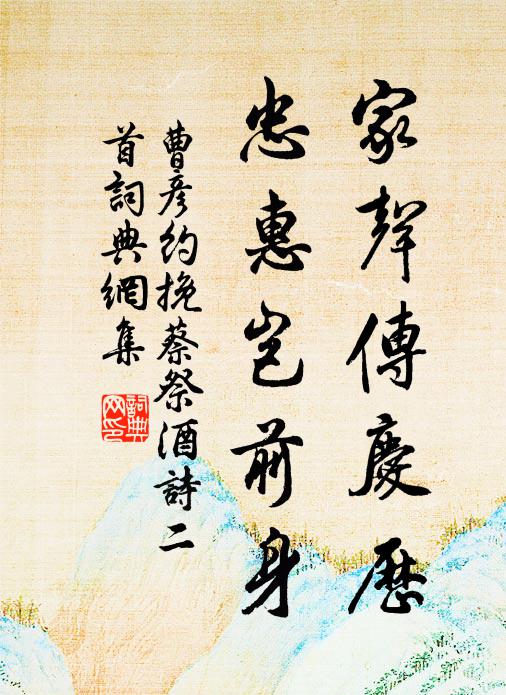 家聲傳慶歷
忠惠豈前身
曹彥約挽蔡祭酒詩二
首詞典網集
詞典網印